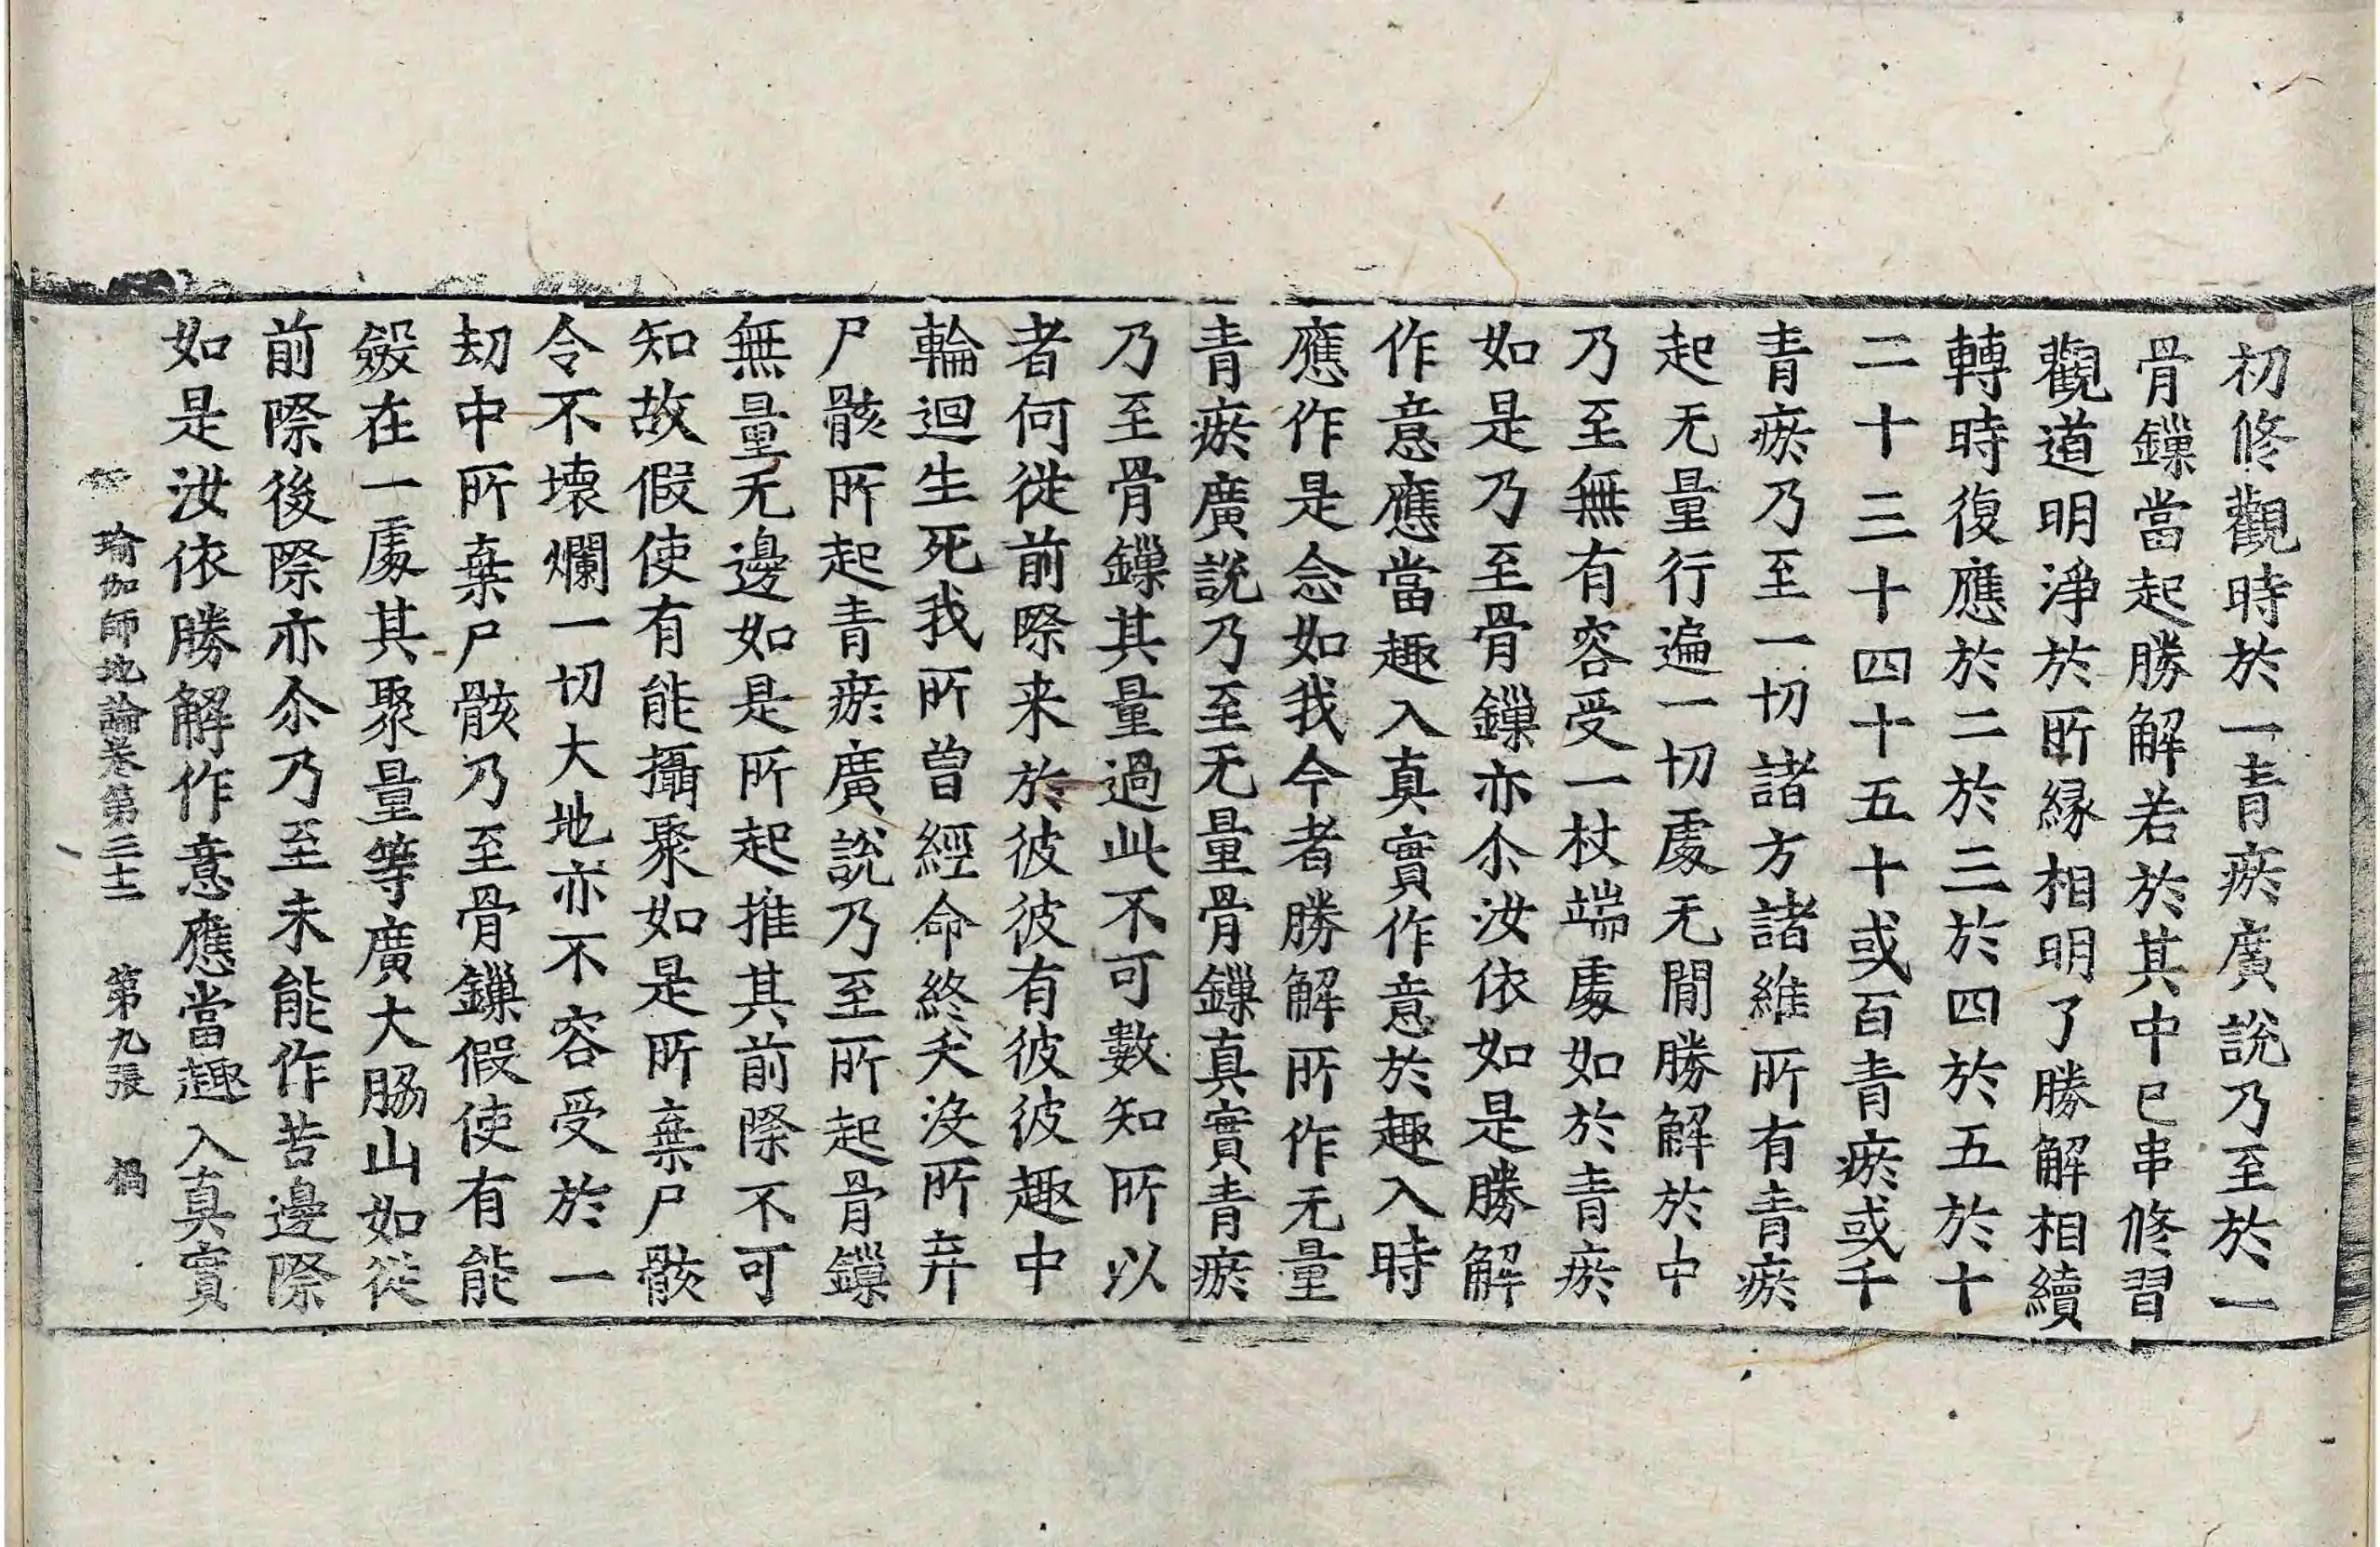 初修觀時於一青瘀廣說乃至於一
骨鏁當起勝解若於其中已串修習
觀道明淨於所緣相明了勝解相續
轉時復應於二於三於四於五於十
二十三十四十五十或百青瘀或千
青瘀乃至一切諸方諸維所有青瘀
起无量行遍一切處无閒勝解於中
乃至無有容受一杖端處如於青瘀
如是乃至骨鏁亦尒汝依如是勝解
作意應當趣入真實作意於趣入時
應作是念如我今者勝解所作无量
青瘀廣說乃至无量骨鏁真實青瘀
乃至骨鏁其量過此不可數知所以
者何從前際来於彼彼有彼彼趣中
輪迴生死我所曾經命終夭沒所弃
尸骸所起青瘀廣說乃至所起骨鏁
無量无邊如是所起推其前際不可
知故假使有能攝聚如是所棄尸骸
令不壞爛一切大地亦不容受於一
劫中所棄尸骸乃至骨鏁假使有能
斂在一處其聚量等廣大脇山如從
前際後際亦尒乃至未能作苦邊際
如是汝依勝解作意應當趣入真實
瑜伽師地論卷第三十二 第九張 禍